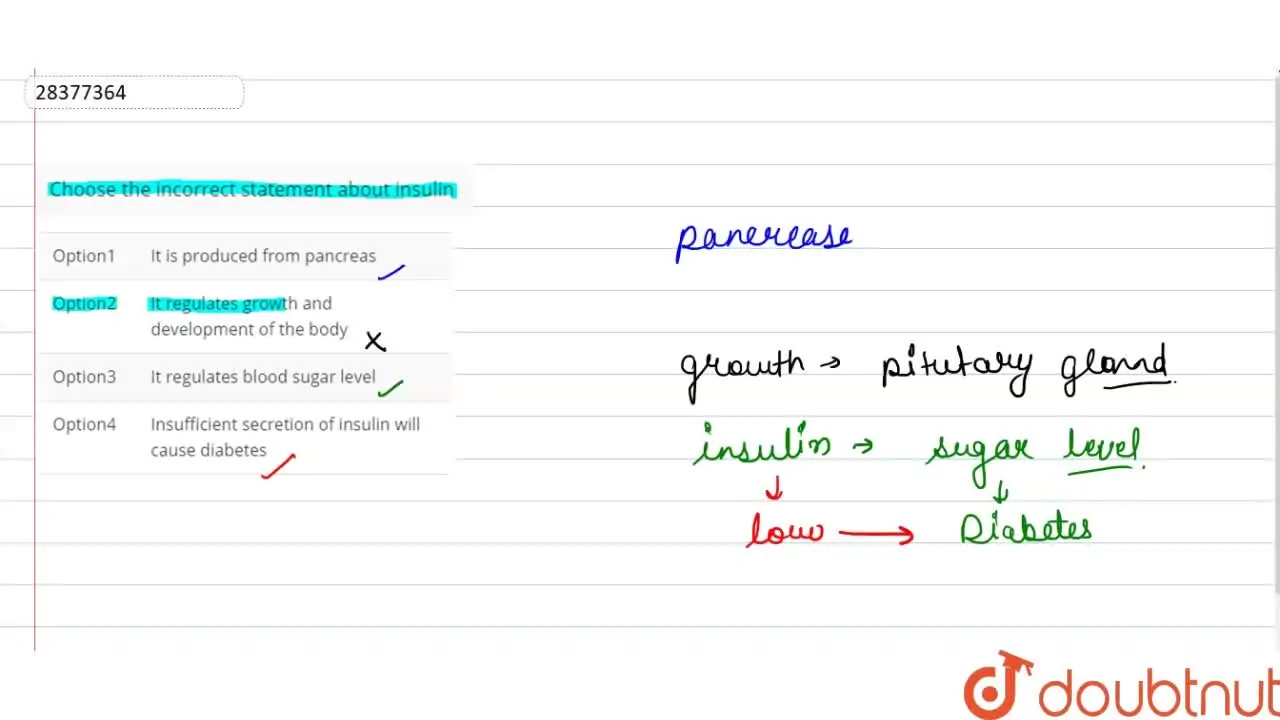 28377364
Choose the incorrect statement about insulin
Option1 It is produced from pancreas
Option2 It regulates growth and
development of the body
Option3 It regulates blood sugar level
Option4 Insufficient secretion of insulin will
cause diabetes
pancrease
growth → pitutary gland
insulin → sugar level
low → Diabetes
doubtnut